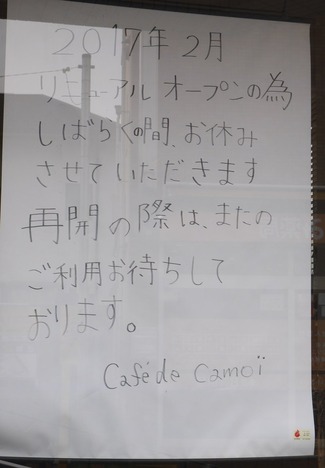 2017年2月
リニューアル オープンの為
しばらくの間、お休み
させていただきます
再開の際は、またの
ご利用お待ちして
おります。
Café de Camoï